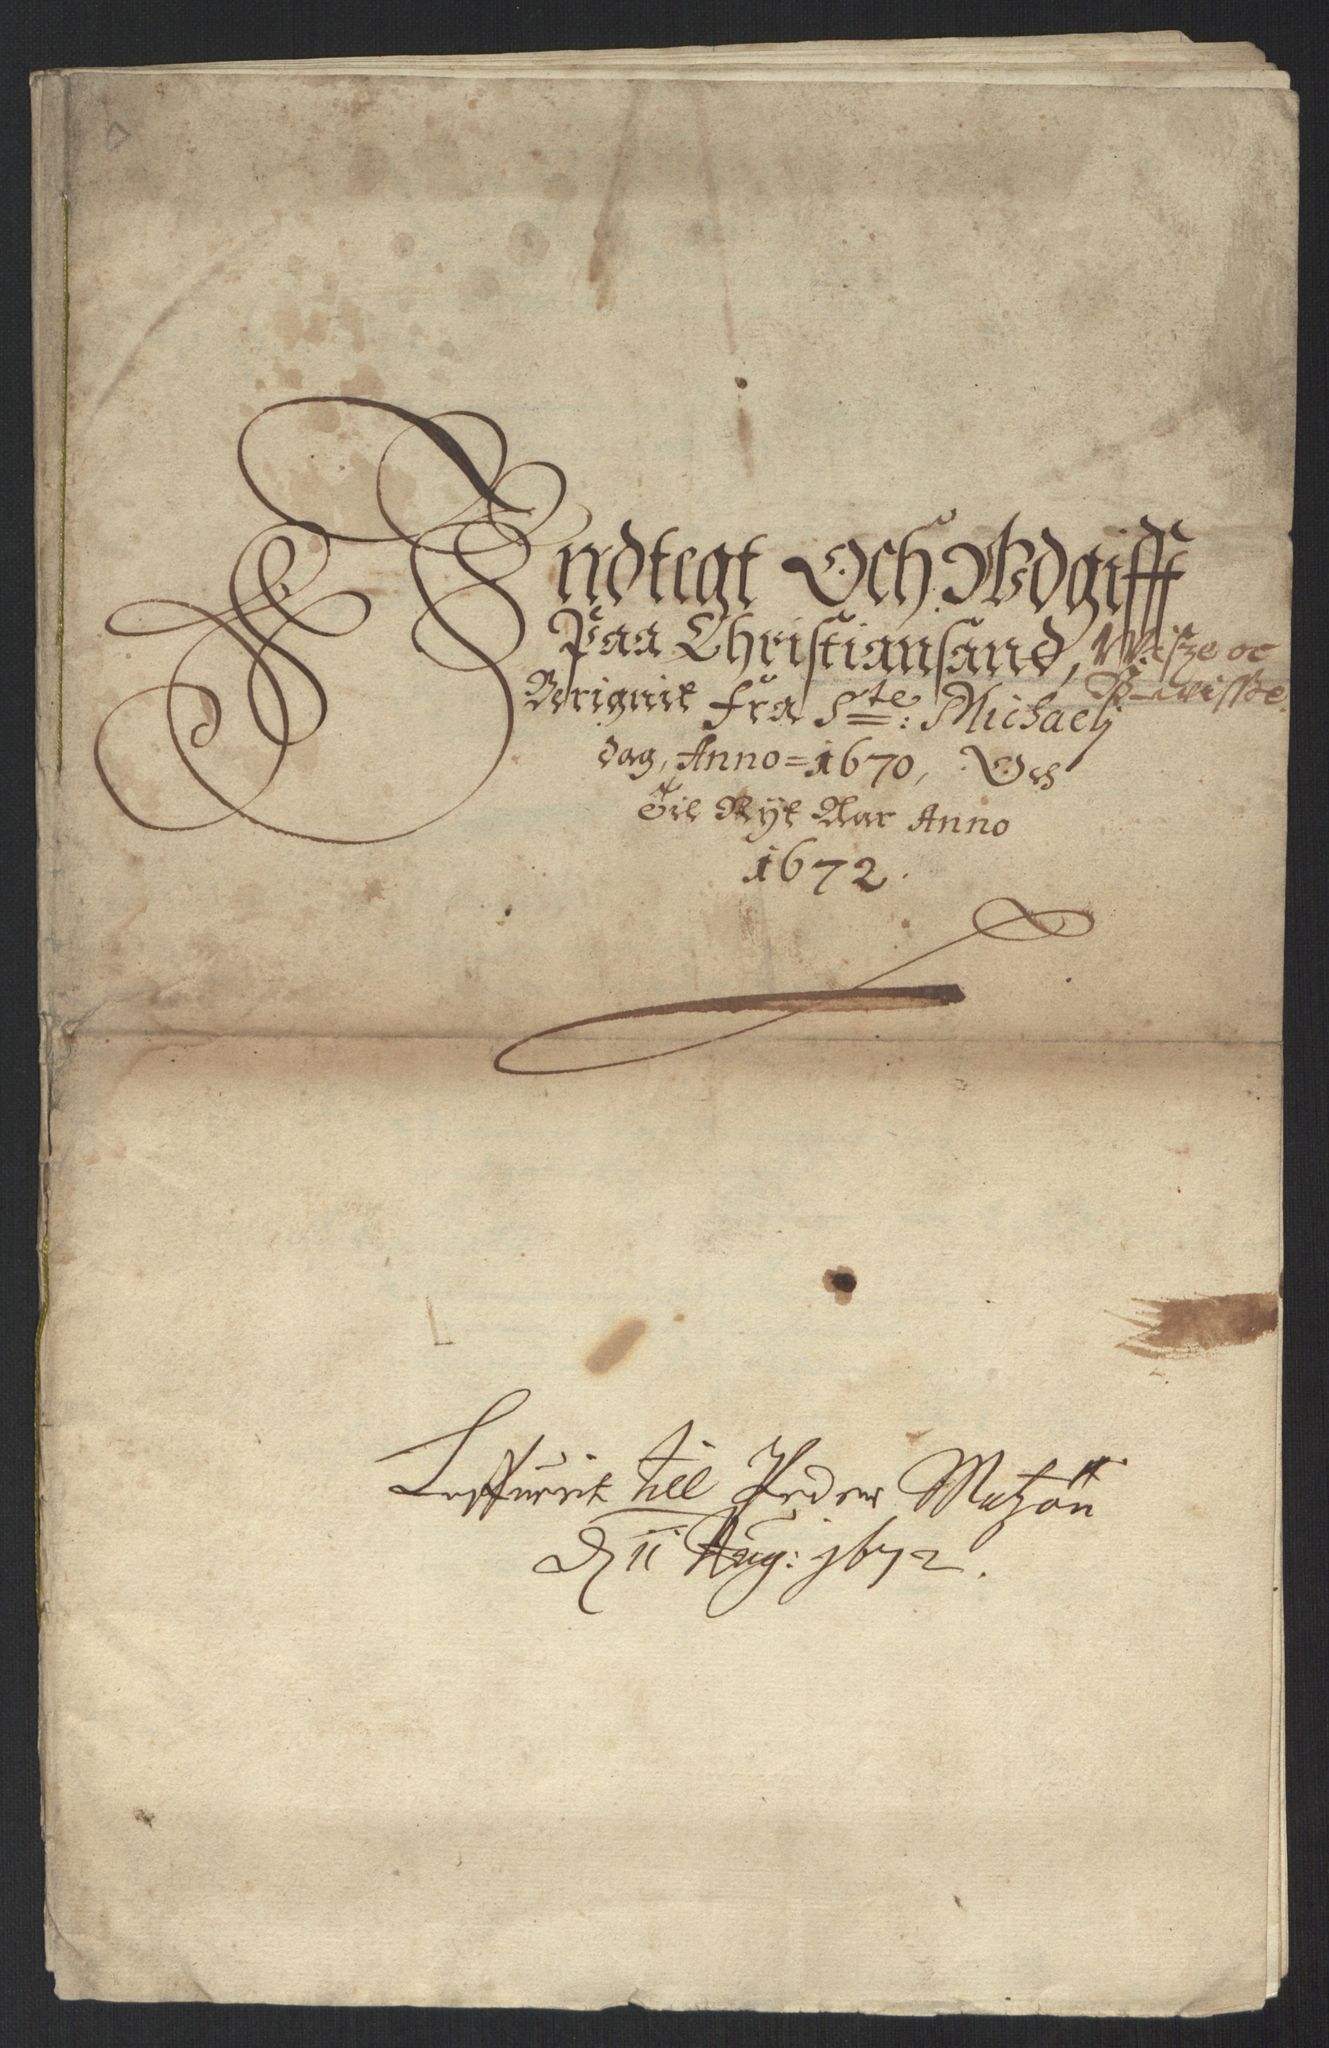 Indtegt Och Wdgifft
Paa Christiansand, Wisze oc
U-wisse
Berignit fra Ste: Michaely
dag, Anno=1670, Och
Til Nyt Aar Anno
1672.
Leffuerit till Peder Matzön
d 11 Aug: 1672.